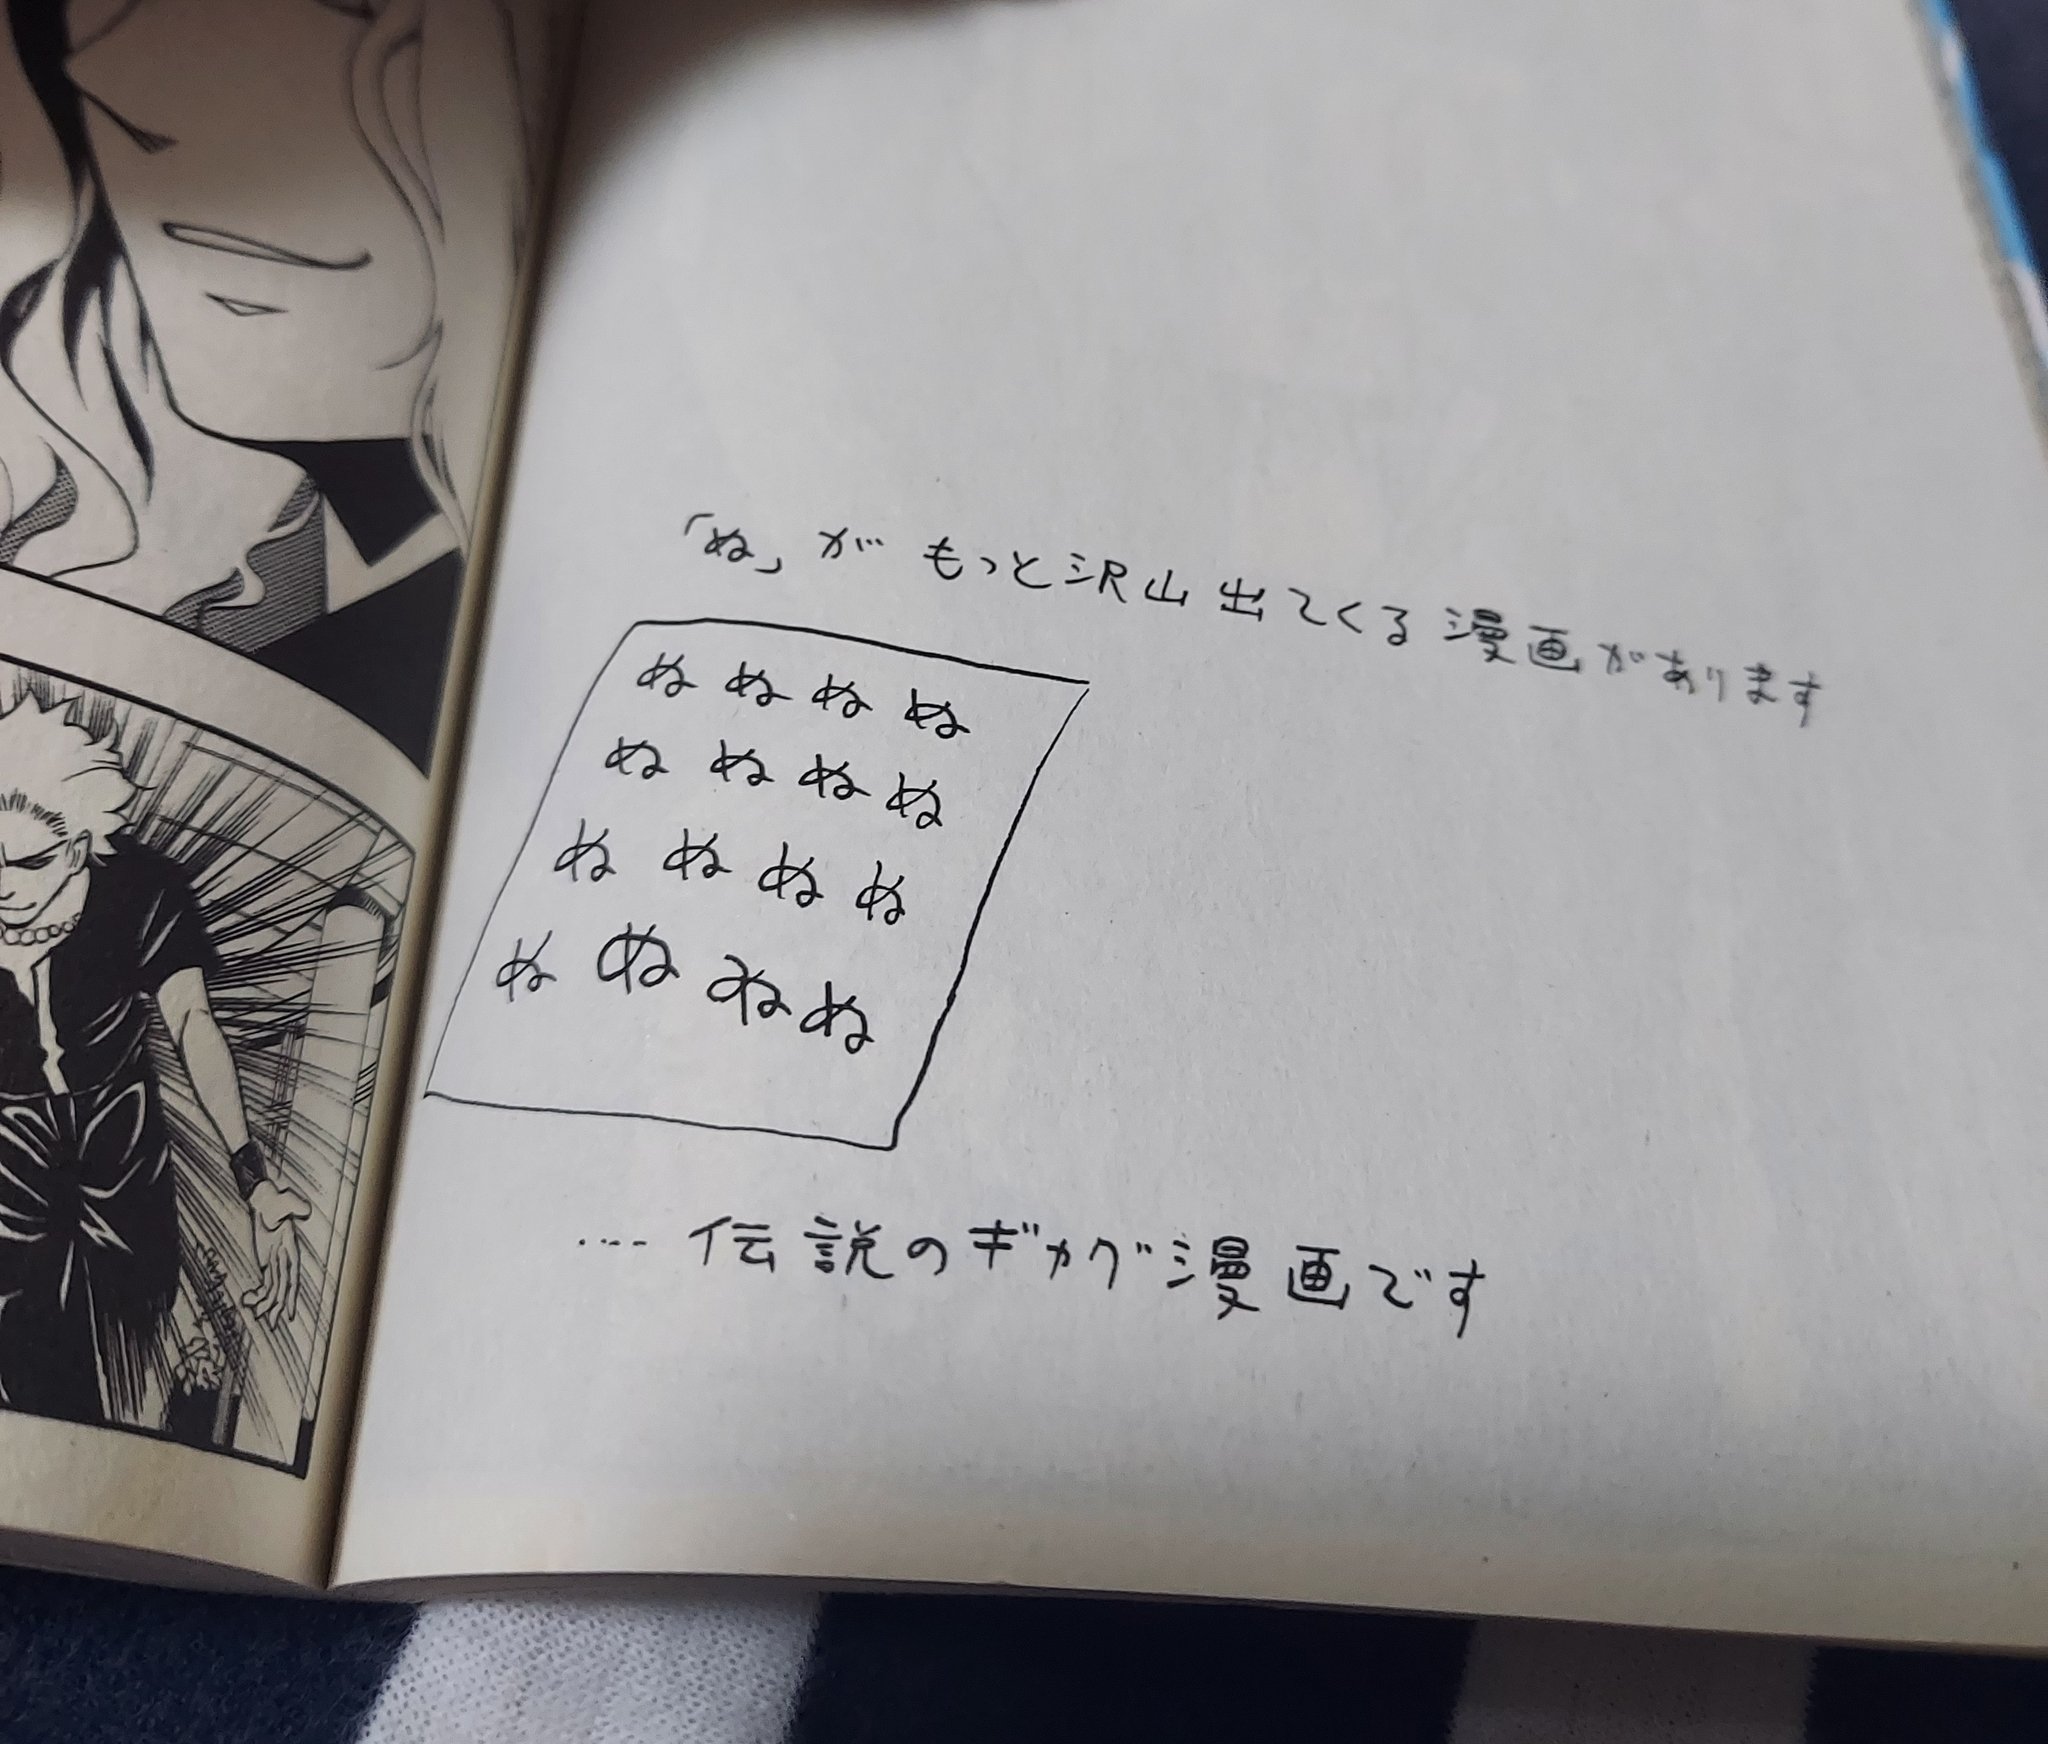 「ぬ」が もっと沢山出てくる漫画があります
ぬ ぬ ぬ ぬ
ぬ ぬ ぬ ぬ
ぬ ぬ ぬ ぬ
ぬ ぬ ね ぬ
…. 伝説のギャグ漫画です